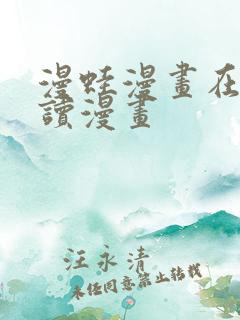 漫蛙漫畫在
讀漫畫
汪永清
未经同意禁止转载